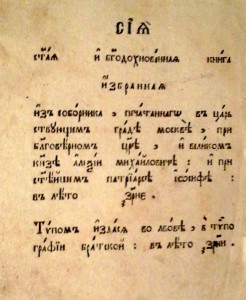 СІѦ
ст҃аѧ и҆ бг҃одохновеннаѧ книга
и҆збраннаѧ
и҆зъ соборника , печатаннагѡ въ цар
ствующемъ градѣ москвѣ , при
благовѣрномъ цр҃ѣ , и҆ великомъ
кн҃зѣ алеѯїи михайловичѣ : и҆ при
ст҃ѣйшемъ патрїарсѣ їѡсифѣ :
въ лѣто ҂зрне .
Тѵпомъ и҆здасѧ во львовѣ , в тѵпо
графїи братской : въ лѣто